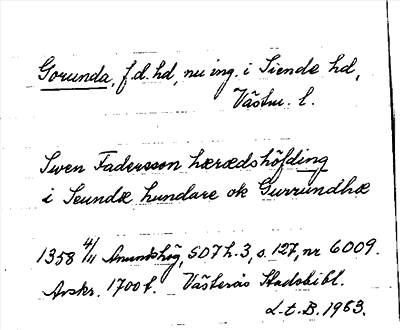 Gorunda, f.d. hd, nu ing. i Siende hd,
Västm. l.
Swen Fadersson hærædshöfding
i Seundæ hundare ok Gurrundhæ
1358 4/11 Anundshög, SD7 h. 3, s. 127, nr 6009.
Avskr. 1700 t. Västerås Stadsbibl.
L.t.B. 1963.